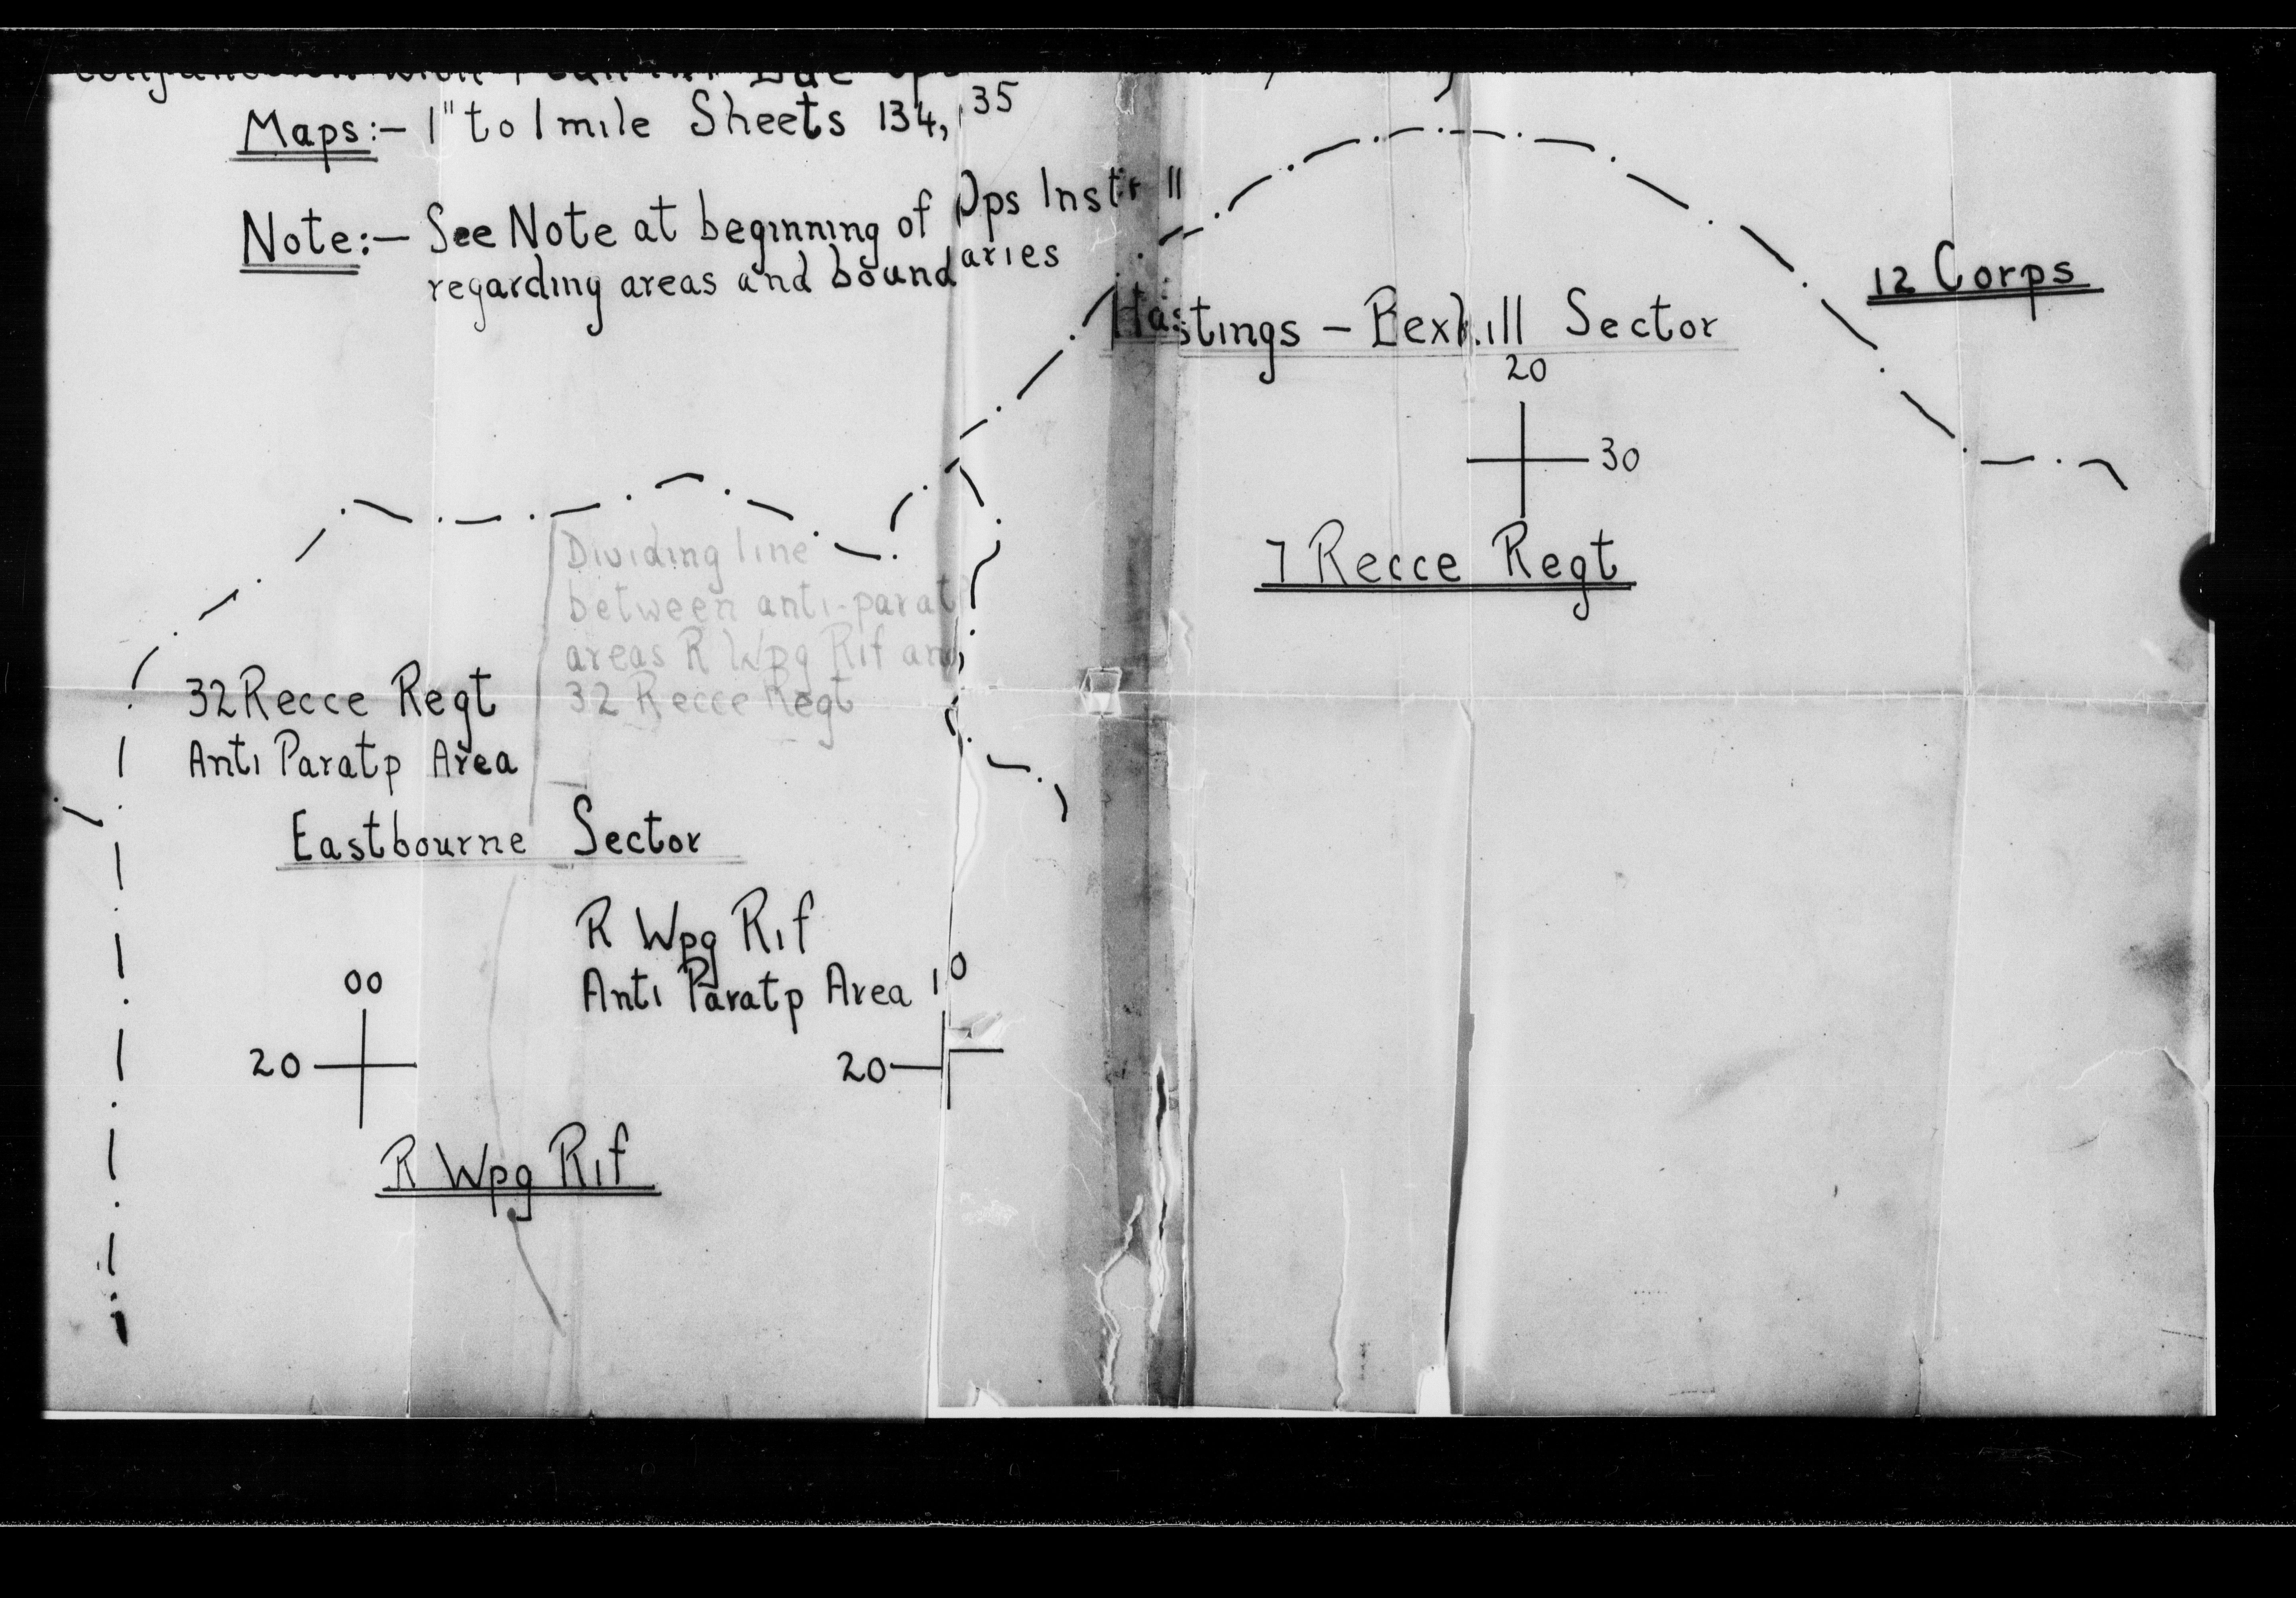 Maps:- 1" to 1 mile Sheets 134, 135
Note:- See Note at beginning of Ops Instr 11
regarding areas and boundaries
12 Corps
Hastings - Bexhill Sector
20
30
7 Recce Regt
Dividing line
between anti-parat
areas R Wpg Rif and
32 Recce Regt
32 Recce Regt
Anti Paratp Area
Eastbourne Sector
R Wpg Rif
Anti Paratp Area
00
10
20
20
R Wpg Rif